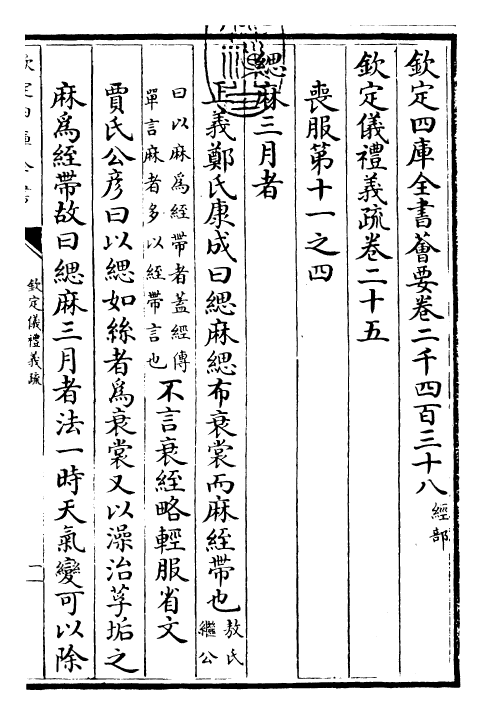 欽定四庫全書薈要卷二千四百三十八 經部
欽定儀禮義疏卷二十五
喪服第十一之四
緦麻三月者
正義鄭氏康成曰緦麻緦布衰裳而麻絰帶也 敖氏繼公
曰以麻爲絰帶者蓋經傳單言麻者多以絰帶言也 不言衰絰略輕服省文
賈氏公彦曰以緦如絲者爲衰裳又以澡治莩垢之
麻爲絰帶故曰緦麻三月者法一時天氣變可以除
欽定儀禮義疏
一